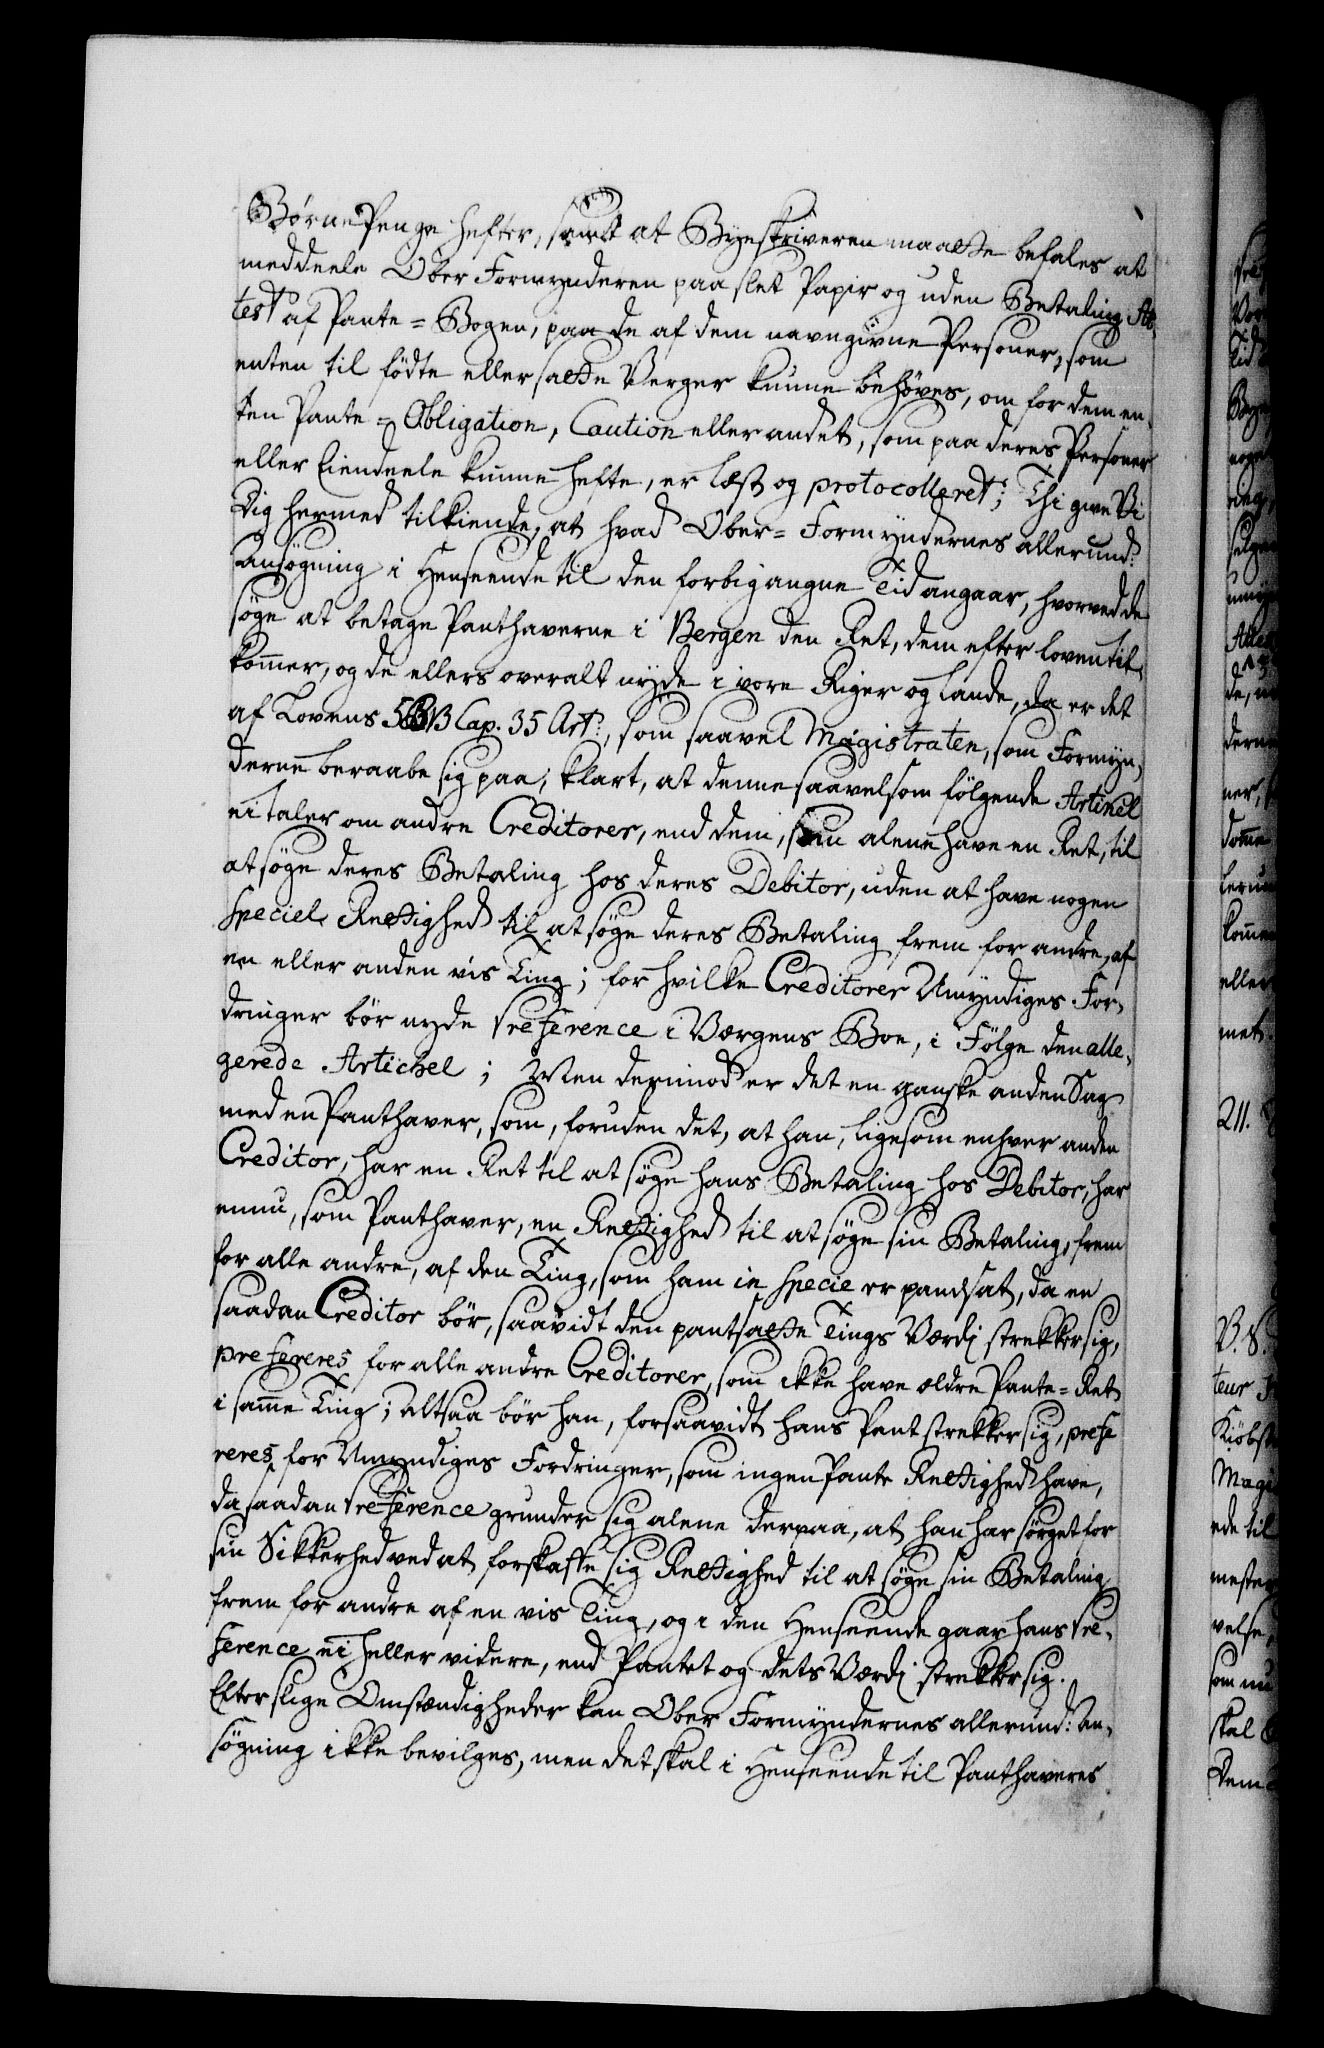 Børne Penge hefter, samt at Byeskriveren maatte befales at
meddeele Ober Formynderen paa slet Papir og uden Betaling At-
test af Pante=Bogen, paa de af dem navngivne Personer, som
enten til fødte eller satte Verger kunne behöves, om for dem en-
ten Pante=Obligation, Caution eller andet, som paa deres Personer
eller Eiendeele kunne hefte, er læst og protocolleret; Thi give Vi
Dig hermed tilkiende, at hvad Ober=Formyndernes allerund:
Ansøgning i Henseende til den forbigangne Tid angaar, hvorved de
søge at betage Panthaverne i Bergen den Ret, dem efter Loven til-
kommer, og de ellers overalt nyde i vore Riger og Lande, da er det
af Lovens 5 B 13 Cap. 35 Art:, som saavel Magistraten, som Formyn-
derne beraabe sig paa, klart, at denne saavelsom følgende Artikel
ei taler om andre Creditorer, end dem, som alene have en Ret, til
at søge deres Betaling hos deres Debitor, uden at have nogen
speciel Rettighed til at søge deres Betaling frem for andre, af
en eller anden vis Ting; for hvilke Creditorer Umyndiges For-
dringer bør nyde Preference i Værgens Boe, i Følge den alle-
gerede Artichel; Men derimod er det en ganske anden Sag
med en Panthaver, som, foruden det, at han, ligesom enhver anden
Creditor, har en Ret til at søge hans Betaling hos Debitor, har
ennu, som Panthaver, en Rettighed til at søge sin Betaling, frem
for alle andre, af den Ting, som ham in specie er pandsat, da en
saadan Creditor bør, saavidt den pantsatte Tings Værdi strekker sig,
prefereres for alle andre Creditorer, som ikke have ældre Pante=Ret
i samme Ting; Altsaa bør han, forsaavidt hans Pant strekker sig, prefe-
reres for Umyndiges Fordringer, som ingen Pante Rettighed have,
da saadan Preference grunder sig alene derpaa, at han har sørget for
sin Sikkerhed ved at forskaffe sig Rettighed til at søge sin Betaling
frem for andre af en vis Ting, og i den Henseende gaar hans Pre-
ference ei heller videre, end Pantet og dets Værdi strekker sig.
Efter slige Omstændigheder kan Ober Formyndernes allerund: An-
søgning ikke bevilges, men det skal i Henseende til Panthaveres